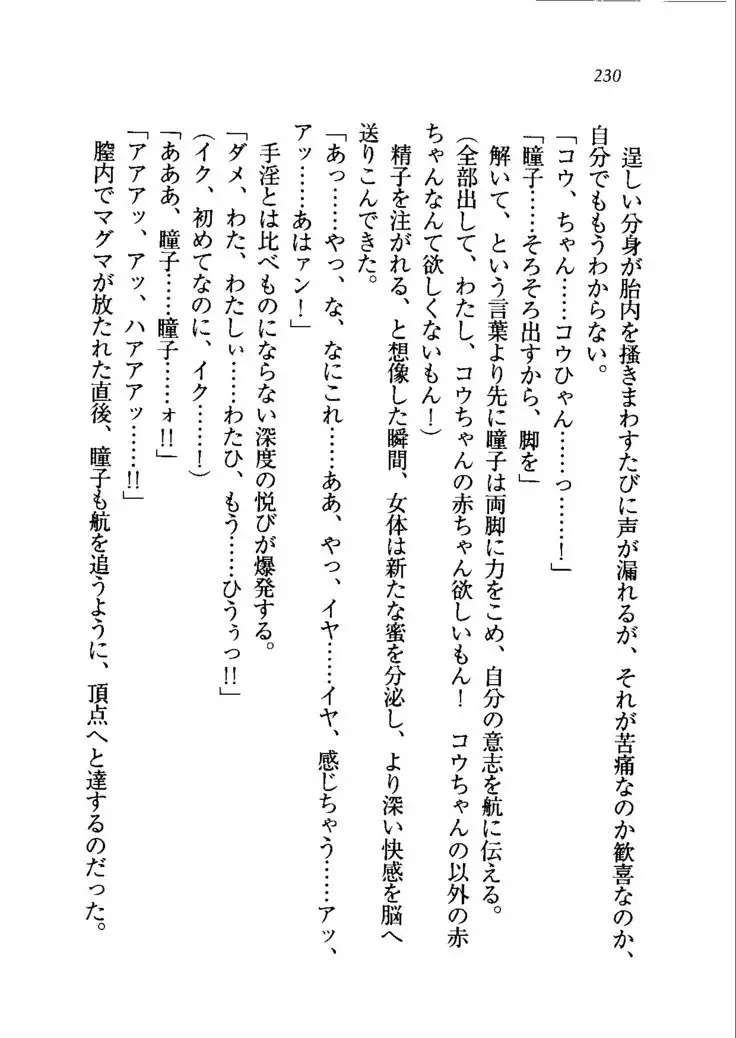 230
逞しい分身が胎内を掻きまわすたびに声が漏れるが、それが苦痛なのか歓喜なのか、
自分でももうわからない。
「コウ、ちゃん……コウひゃん……っ……！」
「瞳子……そろそろ出すから、脚を」
解いて、という言葉より先に瞳子は両脚に力をこめ、自分の意志を航に伝える。
(全部出して、わたし、コウちゃんの赤ちゃん欲しいもん！　コウちゃんの以外の赤
ちゃんなんて欲しくないもん！)
精子を注がれる、と想像した瞬間、女体は新たな蜜を分泌し、より深い快感を脳へ
送りこんできた。
「あっ……やっ、な、なにこれ……ああ、やっ、イヤ……イヤ、感じちゃう……アッ、
アッ……あはァン！」
手淫とは比べものにならない深度の悦びが爆発する。
「ダメ、わた、わたしぃ……わたひ、もう……ひうぅっ!!」
(イク、初めてなのに、イク……！)
「あああ、瞳子……瞳子……ォ!!」
「アアアッ、アッ、ハアアアッ……!!」
膣内でマグマが放たれた直後、瞳子も航を追うように、頂点へと達するのだった。